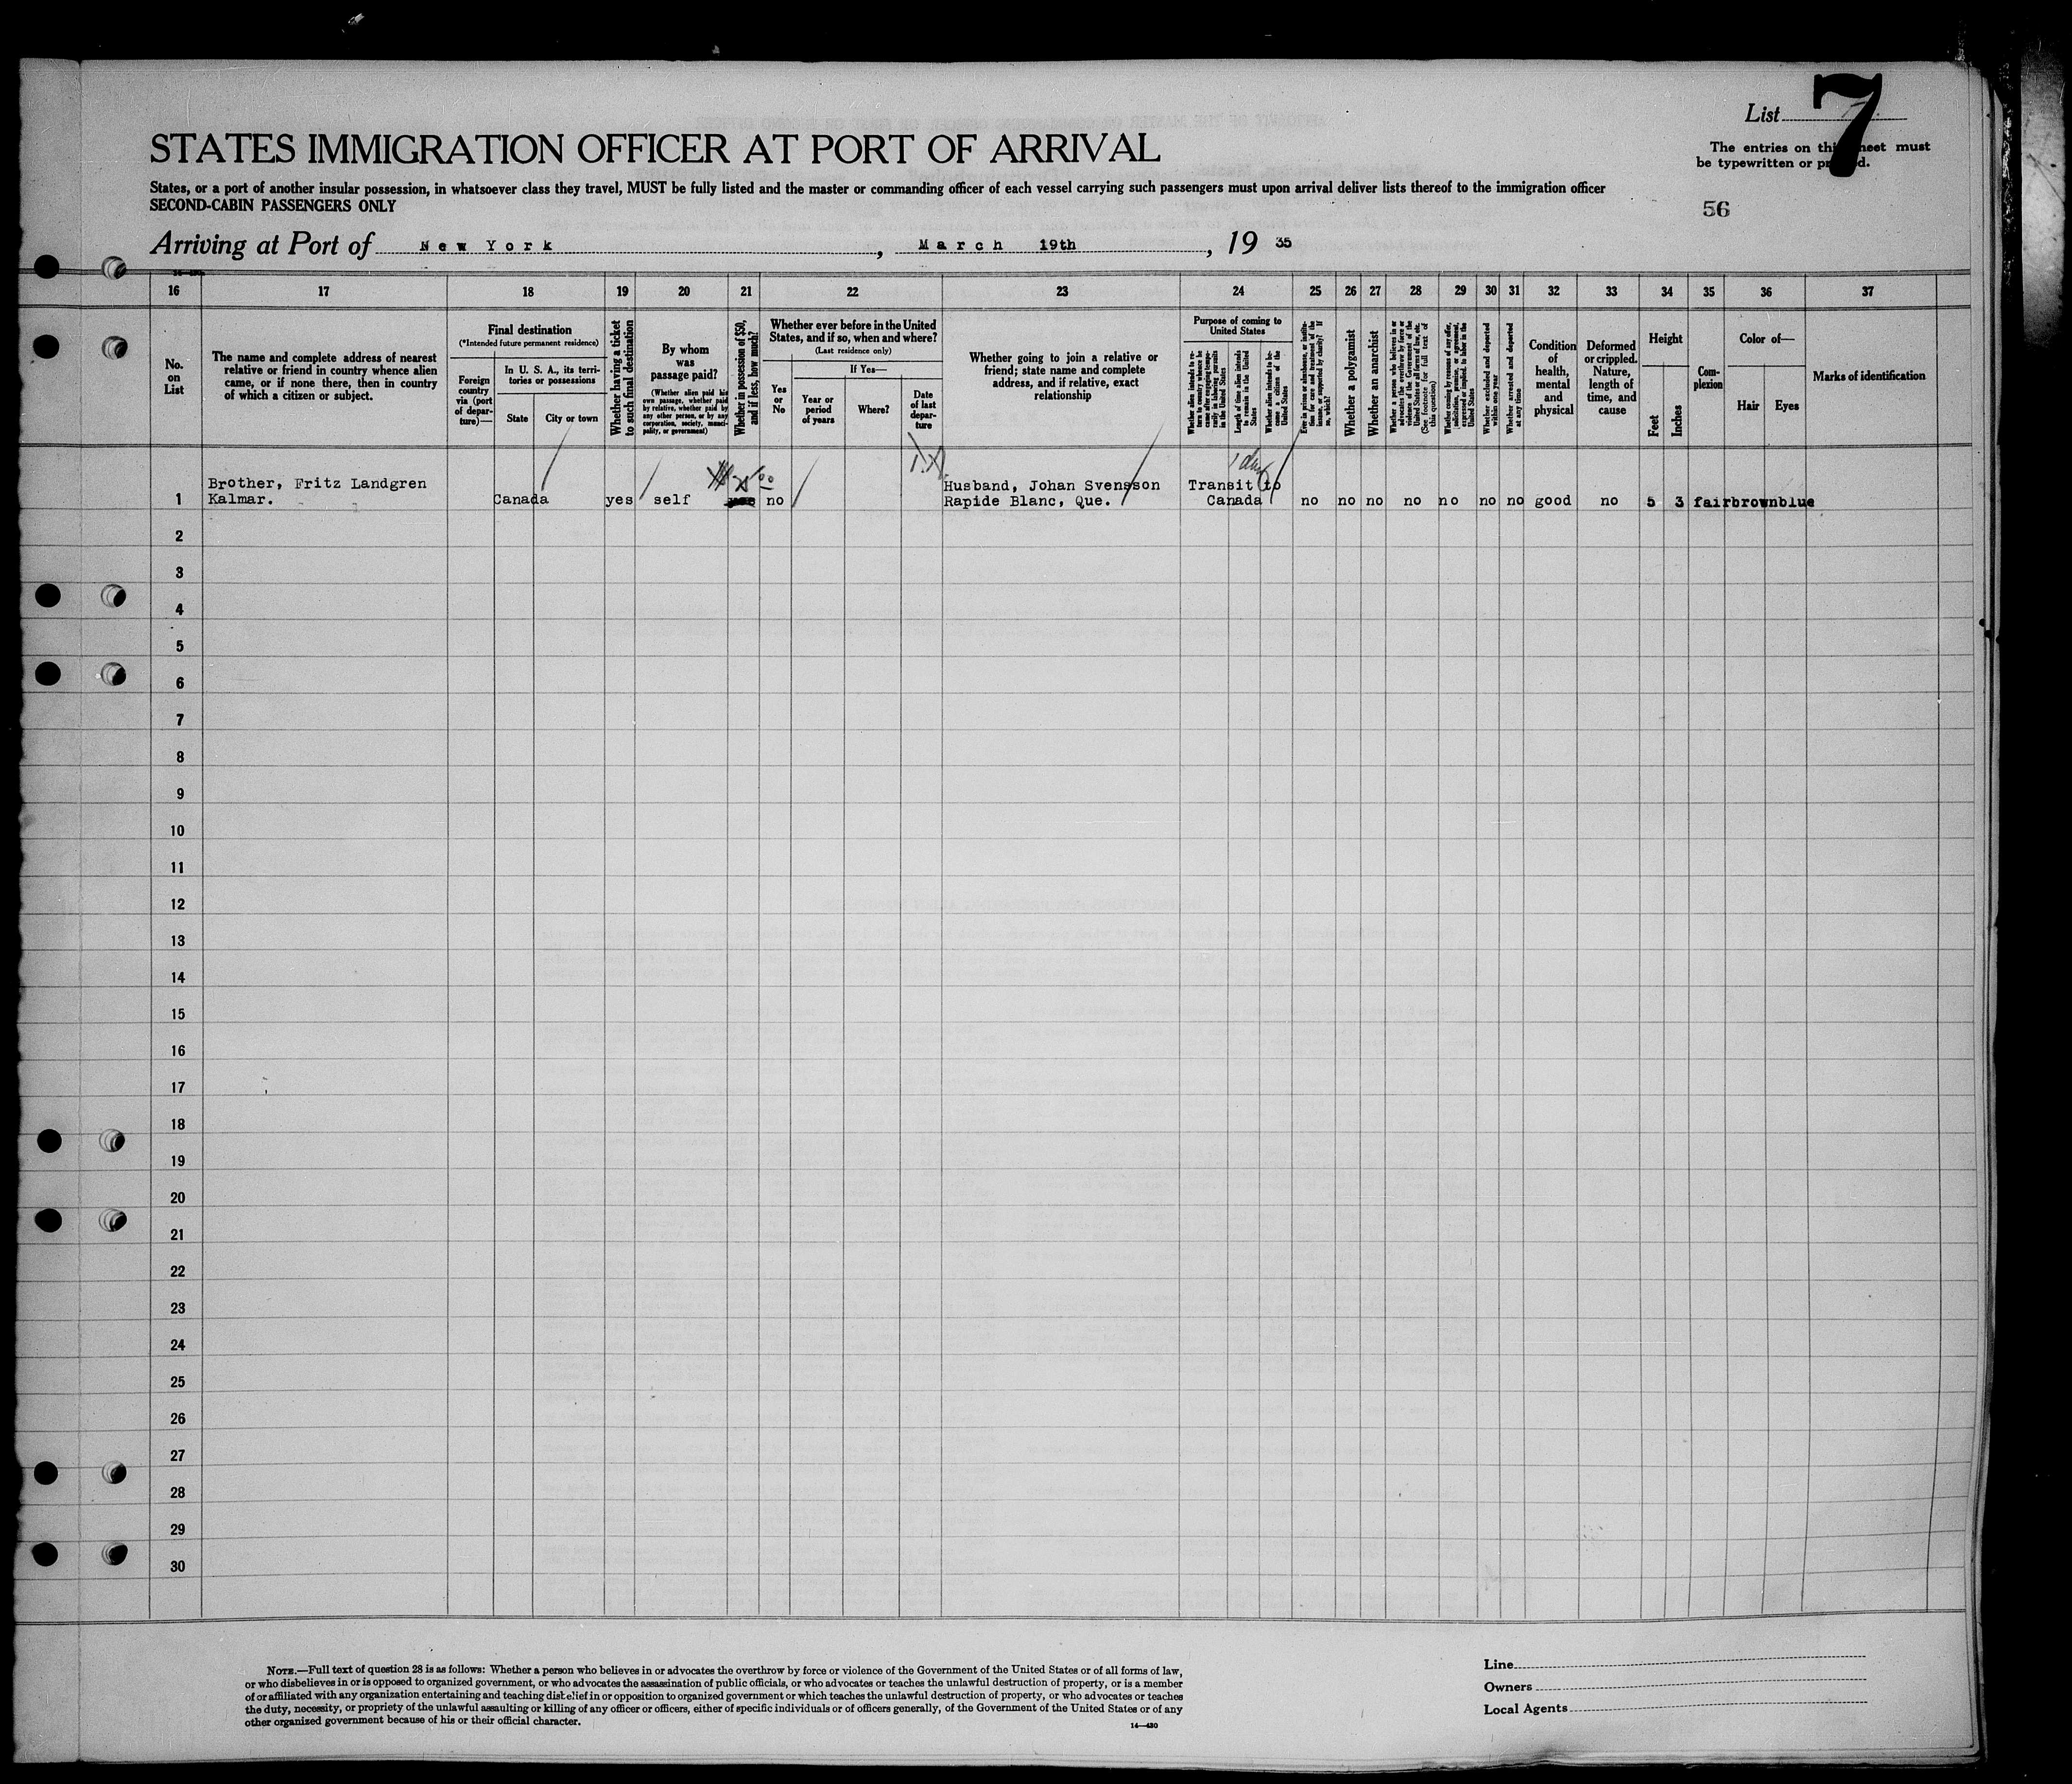 List 7
The entries on this sheet must
be typewritten or printed.
56
STATES IMMIGRATION OFFICER AT PORT OF ARRIVAL
States, or a port of another insular possession, in whatsoever class they travel, MUST be fully listed and the master or commanding officer of each vessel carrying such passengers must upon arrival deliver lists thereof to the immigration officer
SECOND-CABIN PASSENGERS ONLY
Arriving at Port of New York, March 19th, 19 35
16 17 18 19 20 21 22 23 24 25 26 27 28 29 30 31 32 33 34 35 36 37
No.
on
List
The name and complete address of nearest
relative or friend in country whence alien
came, or if none there, then in country
of which a citizen or subject.
Final destination
(*Intended future permanent residence)
Foreign
country
via (port
of depar-
ture)—
In U. S. A., its terri-
tories or possessions
State
City or town
Whether having a ticket
to such final destination
By whom
was
passage paid?
(Whether alien paid his
own passage, whether paid
by relative, whether paid by
any other person, or by any
corporation, society, munici-
pality, or government)
Whether in possession of $50,
and if less, how much?
Whether ever before in the United
States, and if so, when and where?
(Last residence only)
Yes
or
No
If Yes—
Year or
period
of years
Where?
Date
of last
depar-
ture
Whether going to join a relative or
friend; state name and complete
address, and if relative, exact
relationship
Purpose of coming to
United States
Whether alien intends to re-
turn to country whence he
came after engaging tempo-
rarily in laboring pursuits
in the United States
Length of time alien intends
to remain in the United
States
Whether alien intends to be-
come a citizen of the
United States
Ever in prison or almshouse, or institu-
tion for care and treatment of the
insane, or supported by charity? If
so, which?
Whether a polygamist
Whether an anarchist
Whether a person who believes in or
advocates the overthrow by force or
violence of the Government of the
United States or all forms of law, etc.
(See footnote for full text of
this question)
Whether coming by reasons of any offer,
solicitation, promise, or agreement,
expressed or implied, to labor in the
United States
Whether excluded and deported
within one year
Whether arrested and deported
at any time
Condition
of
health,
mental
and
physical
Deformed
or crippled.
Nature,
length of
time, and
cause
Height
Feet
Inches
Com-
plexion
Color of—
Hair
Eyes
Marks of identification
1 day
Brother, Fritz Landgren Husband, Johan Svensson Transit to
1 Kalmar. Canada yes self no Rapide Blanc, Que. Canada no no no no no no no good no 5 3 fair brown blue
2
3
4
5
6
7
8
9
10
11
12
13
14
15
16
17
18
19
20
21
22
23
24
25
26
27
28
29
30
NOTE.—Full text of question 28 is as follows: Whether a person who believes in or advocates the overthrow by force or violence of the Government of the United States or of all forms of law,
or who disbelieves in or is opposed to organized government, or who advocates the assassination of public officials, or who advocates or teaches the unlawful destruction of property, or is a member
of or affiliated with any organization entertaining and teaching disbelief in or opposition to organized government or which teaches the unlawful destruction of property, or who advocates or teaches
the duty, necessity, or propriety of the unlawful assaulting or killing of any officer or officers, either of specific individuals or of officers generally, of the Government of the United States or of any
other organized government because of his or their official character.
14—430
Line
Owners
Local Agents